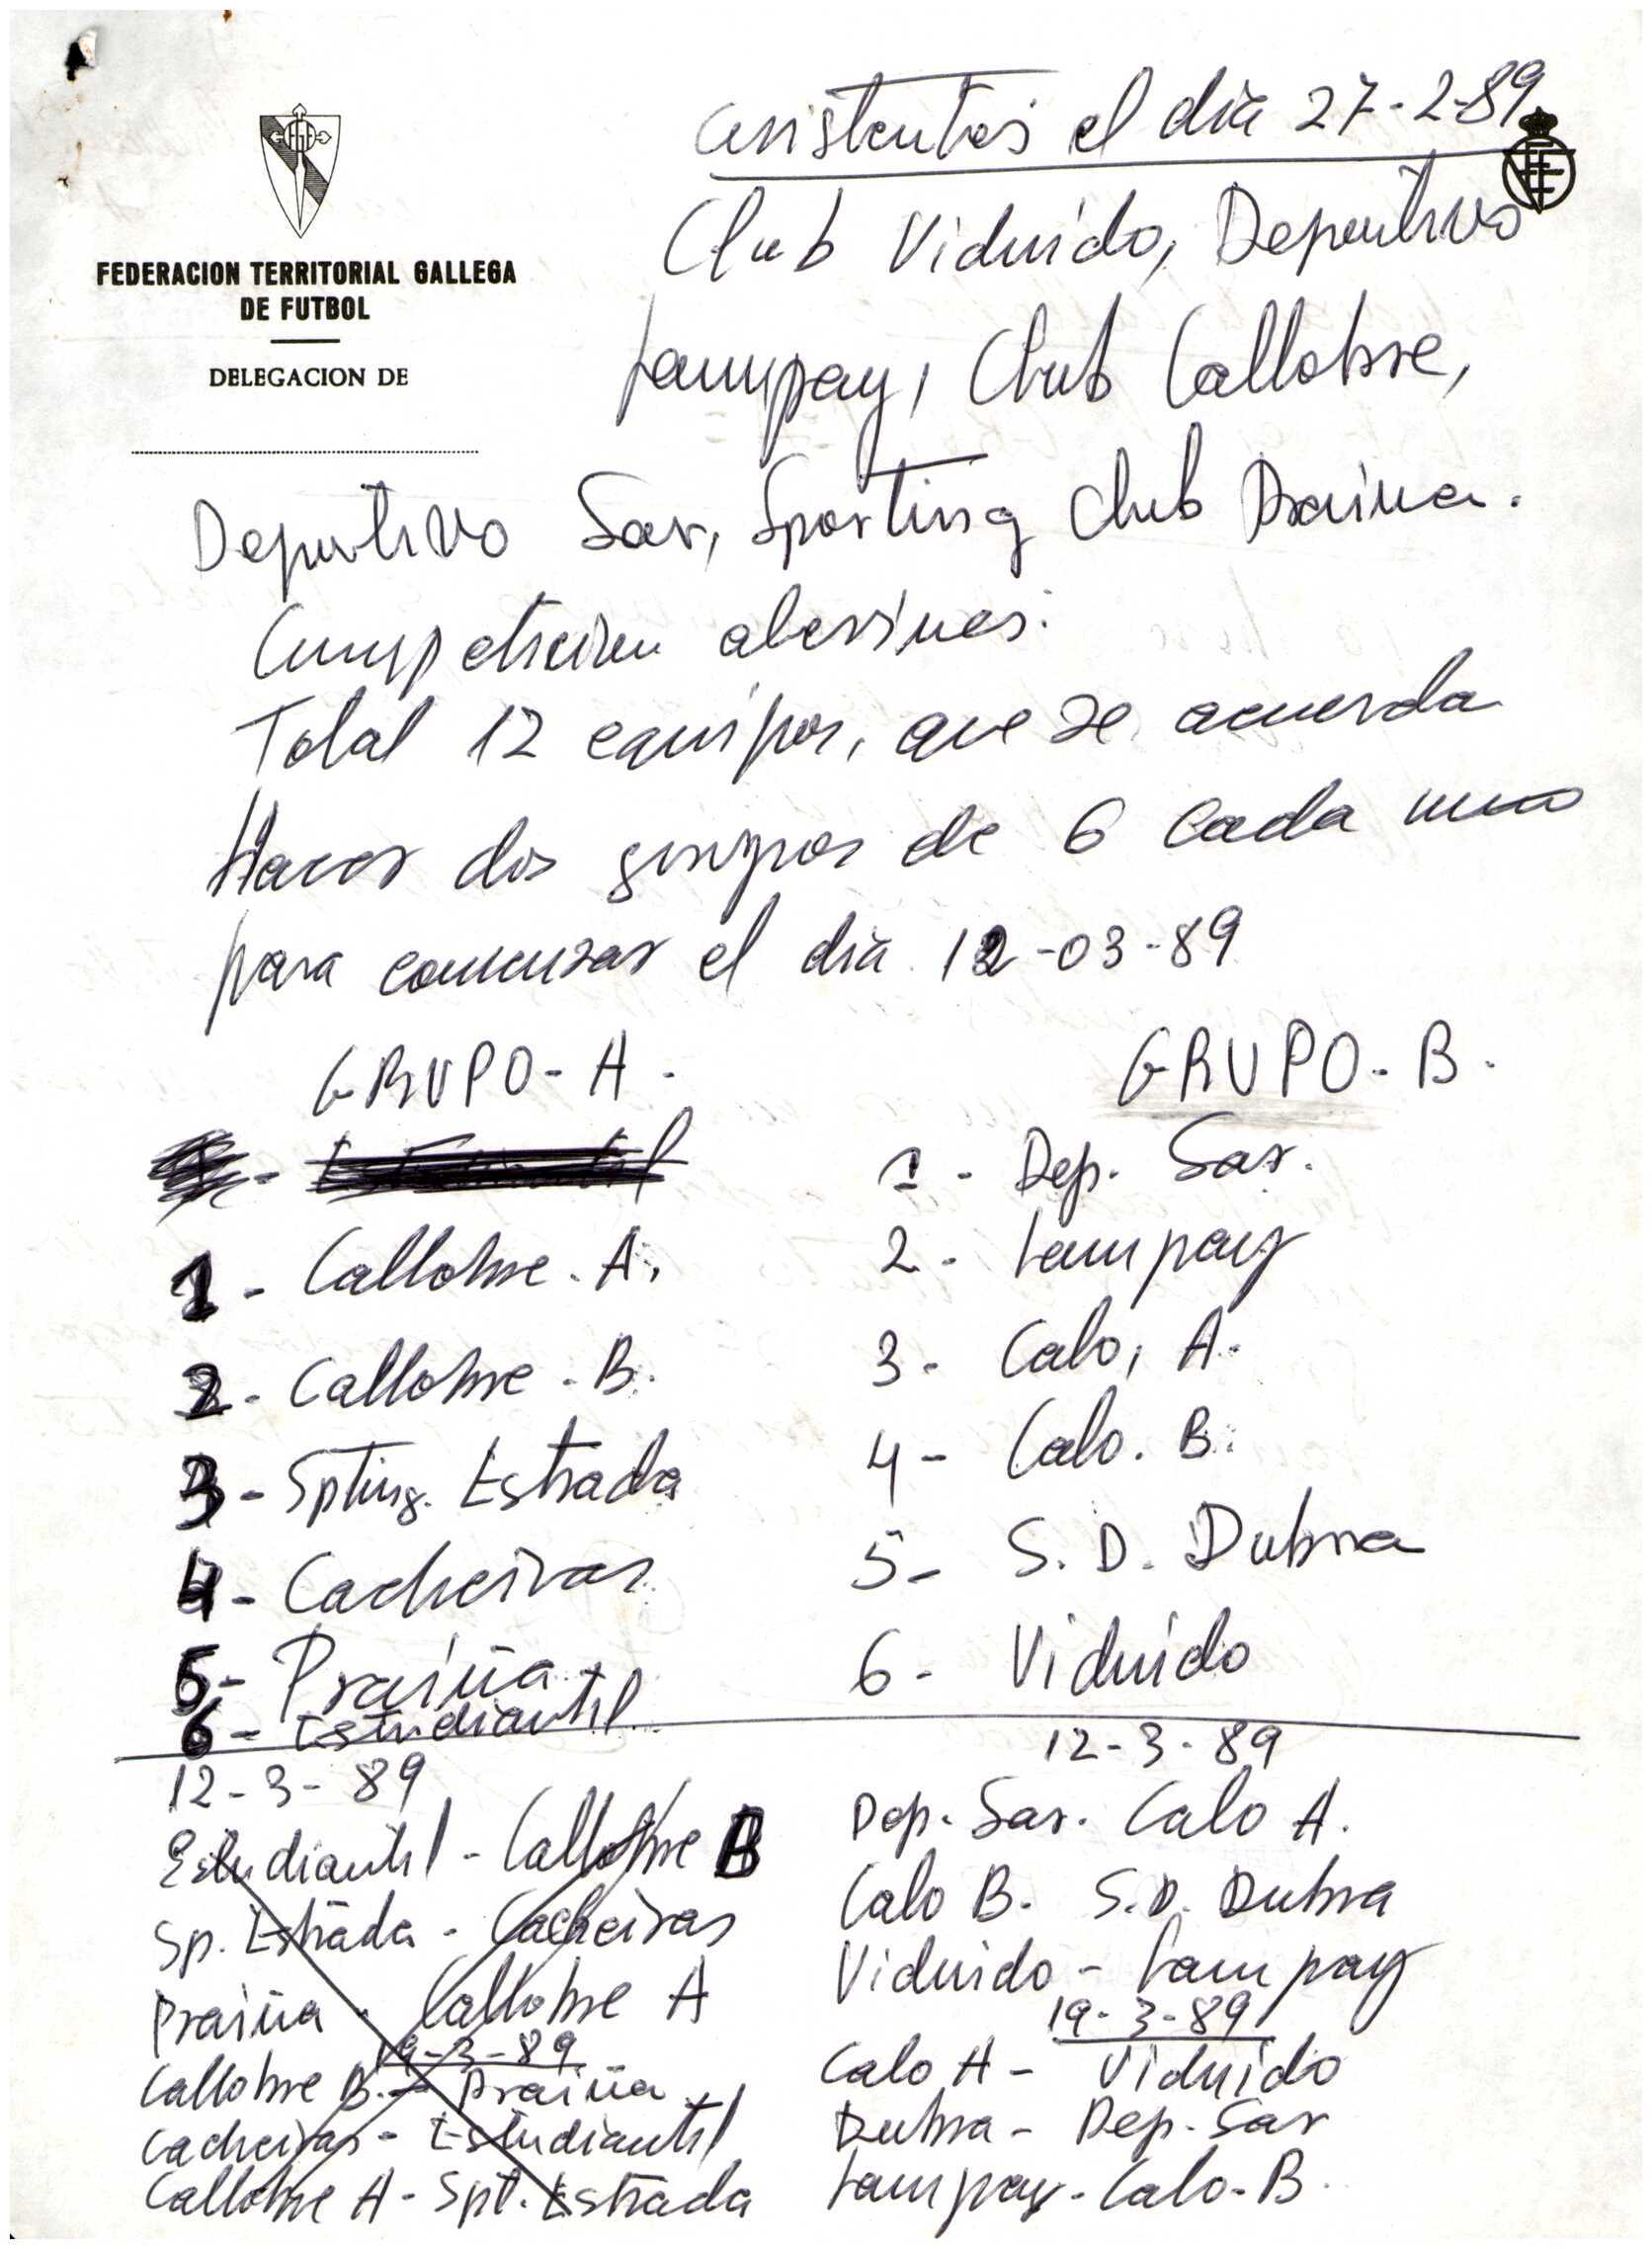 asistentes el dia 27-2-89
FEDERACION TERRITORIAL GALLEGA
DE FUTBOL
DELEGACION DE
Club Viduido, Deportivo
Lampay, Club Callobre,
Deportivo Sar, Sporting Club Praiña.
Competición alevines.
Total 12 equipos, que se acuerda
Hacer dos grupos de 6 cada uno
para comenzar el dia 12-03-89
GRUPO-A.
1- Callobre. A.
2- Callobre. B.
3- Spting. Estrada
4- Cacheiras
5- Praiña
6- Estudiantil
GRUPO-B.
1- Dep. Sar.
2- Lampay
3- Calo, A.
4- Calo. B.
5- S. D. Dubra
6- Viduido
12-3-89
Estudiantil - Callobre B
Sp. Estrada - Cacheiras
Praiña - Callobre A
19-3-89
Callobre B. - Praiña
Cacheiras - Estudiantil
Callobre A - Spt. Estrada
12-3-89
Dep. Sar. Calo A.
Calo B. S.D. Dubra
Viduido - Lampay
19-3-89
Calo A - Viduido
Dubra - Dep. Sar
Lampay - Calo-B.